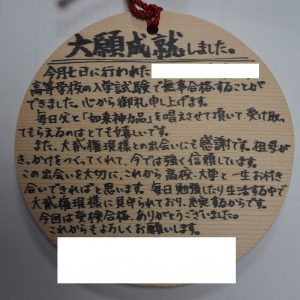 大願成就しました。
今月七日に行われた
高等学校の入学試験で無事合格することが
できました。心から御礼申し上げます。
毎日父と「如来神力品」を唱えさせて頂いて受け取っ
てもらえるのはとても嬉しいです。
また、大威権現様との出会いにも感謝です。祖母が
きっかけをつくってくれて、今では強く信頼しています。
この出会いを大切に、これから高校・大学と一生お付き
合いできればと思います。毎日勉強したり生活する中で
大威権現様に見守られており、充実するからです。
今回は受検合格、ありがとうございました。
これからもよろしくお願いします。